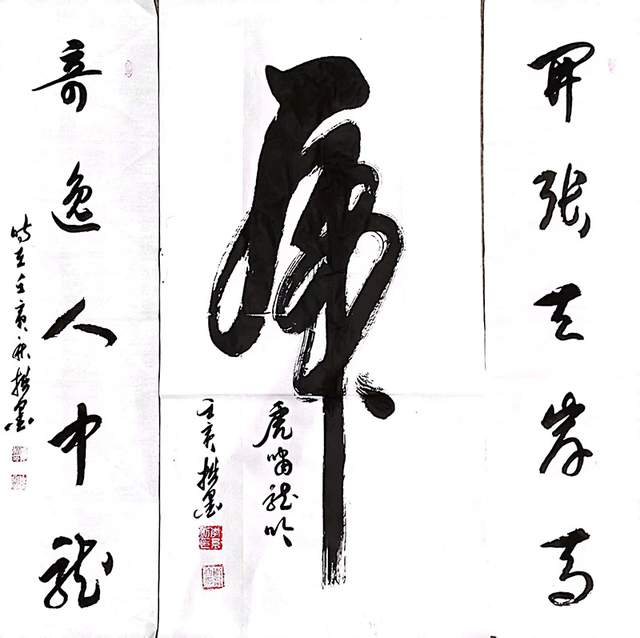 開張天岸馬
虎
虎嘯龍吟
壬寅
奇逸人中龍
時在壬寅秋